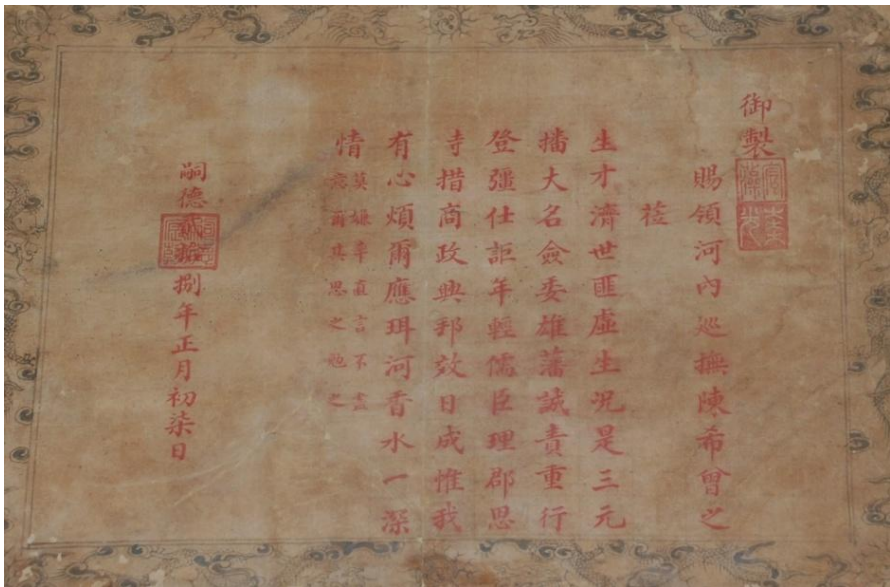 御製
賜領河內巡撫陳希曾之
蒞
生才濟世匪虛生况是三元
播大名僉委雄藩誠責重行
登彊仕詎年輕儒臣理郡思
寺措商政興邦效日成惟我
有心煩爾應珥河香水一深
情
莫嫌率直言不盡
意爾其思之勉之
嗣德貳拾捌年正月初柒日